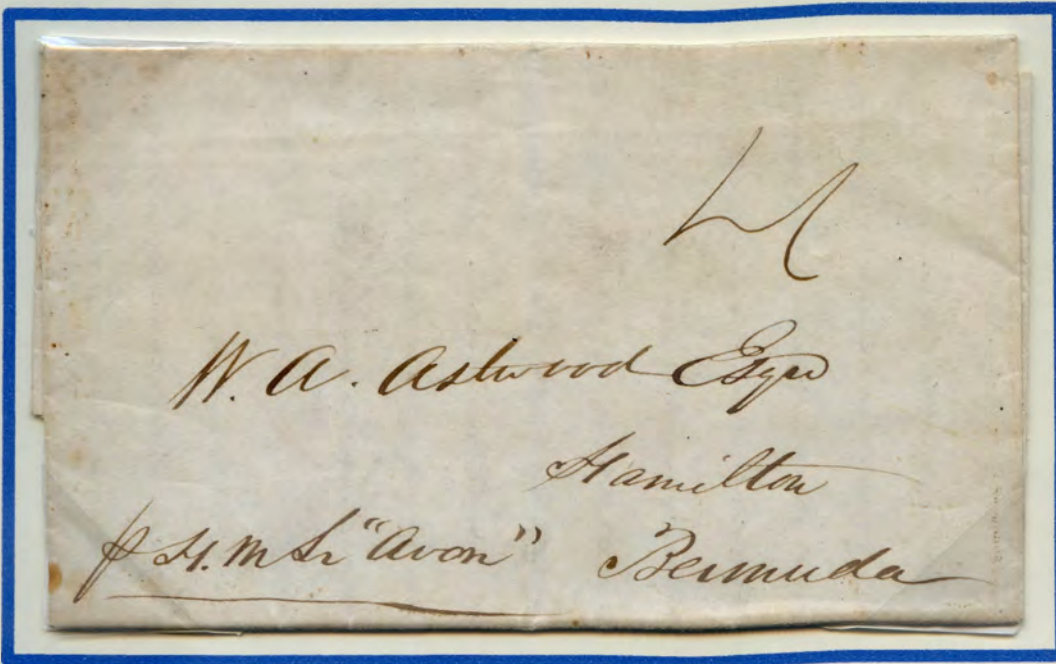 4
W. A. Astwood Esqre
Hamilton
p H. M Sr "Avon" Bermuda